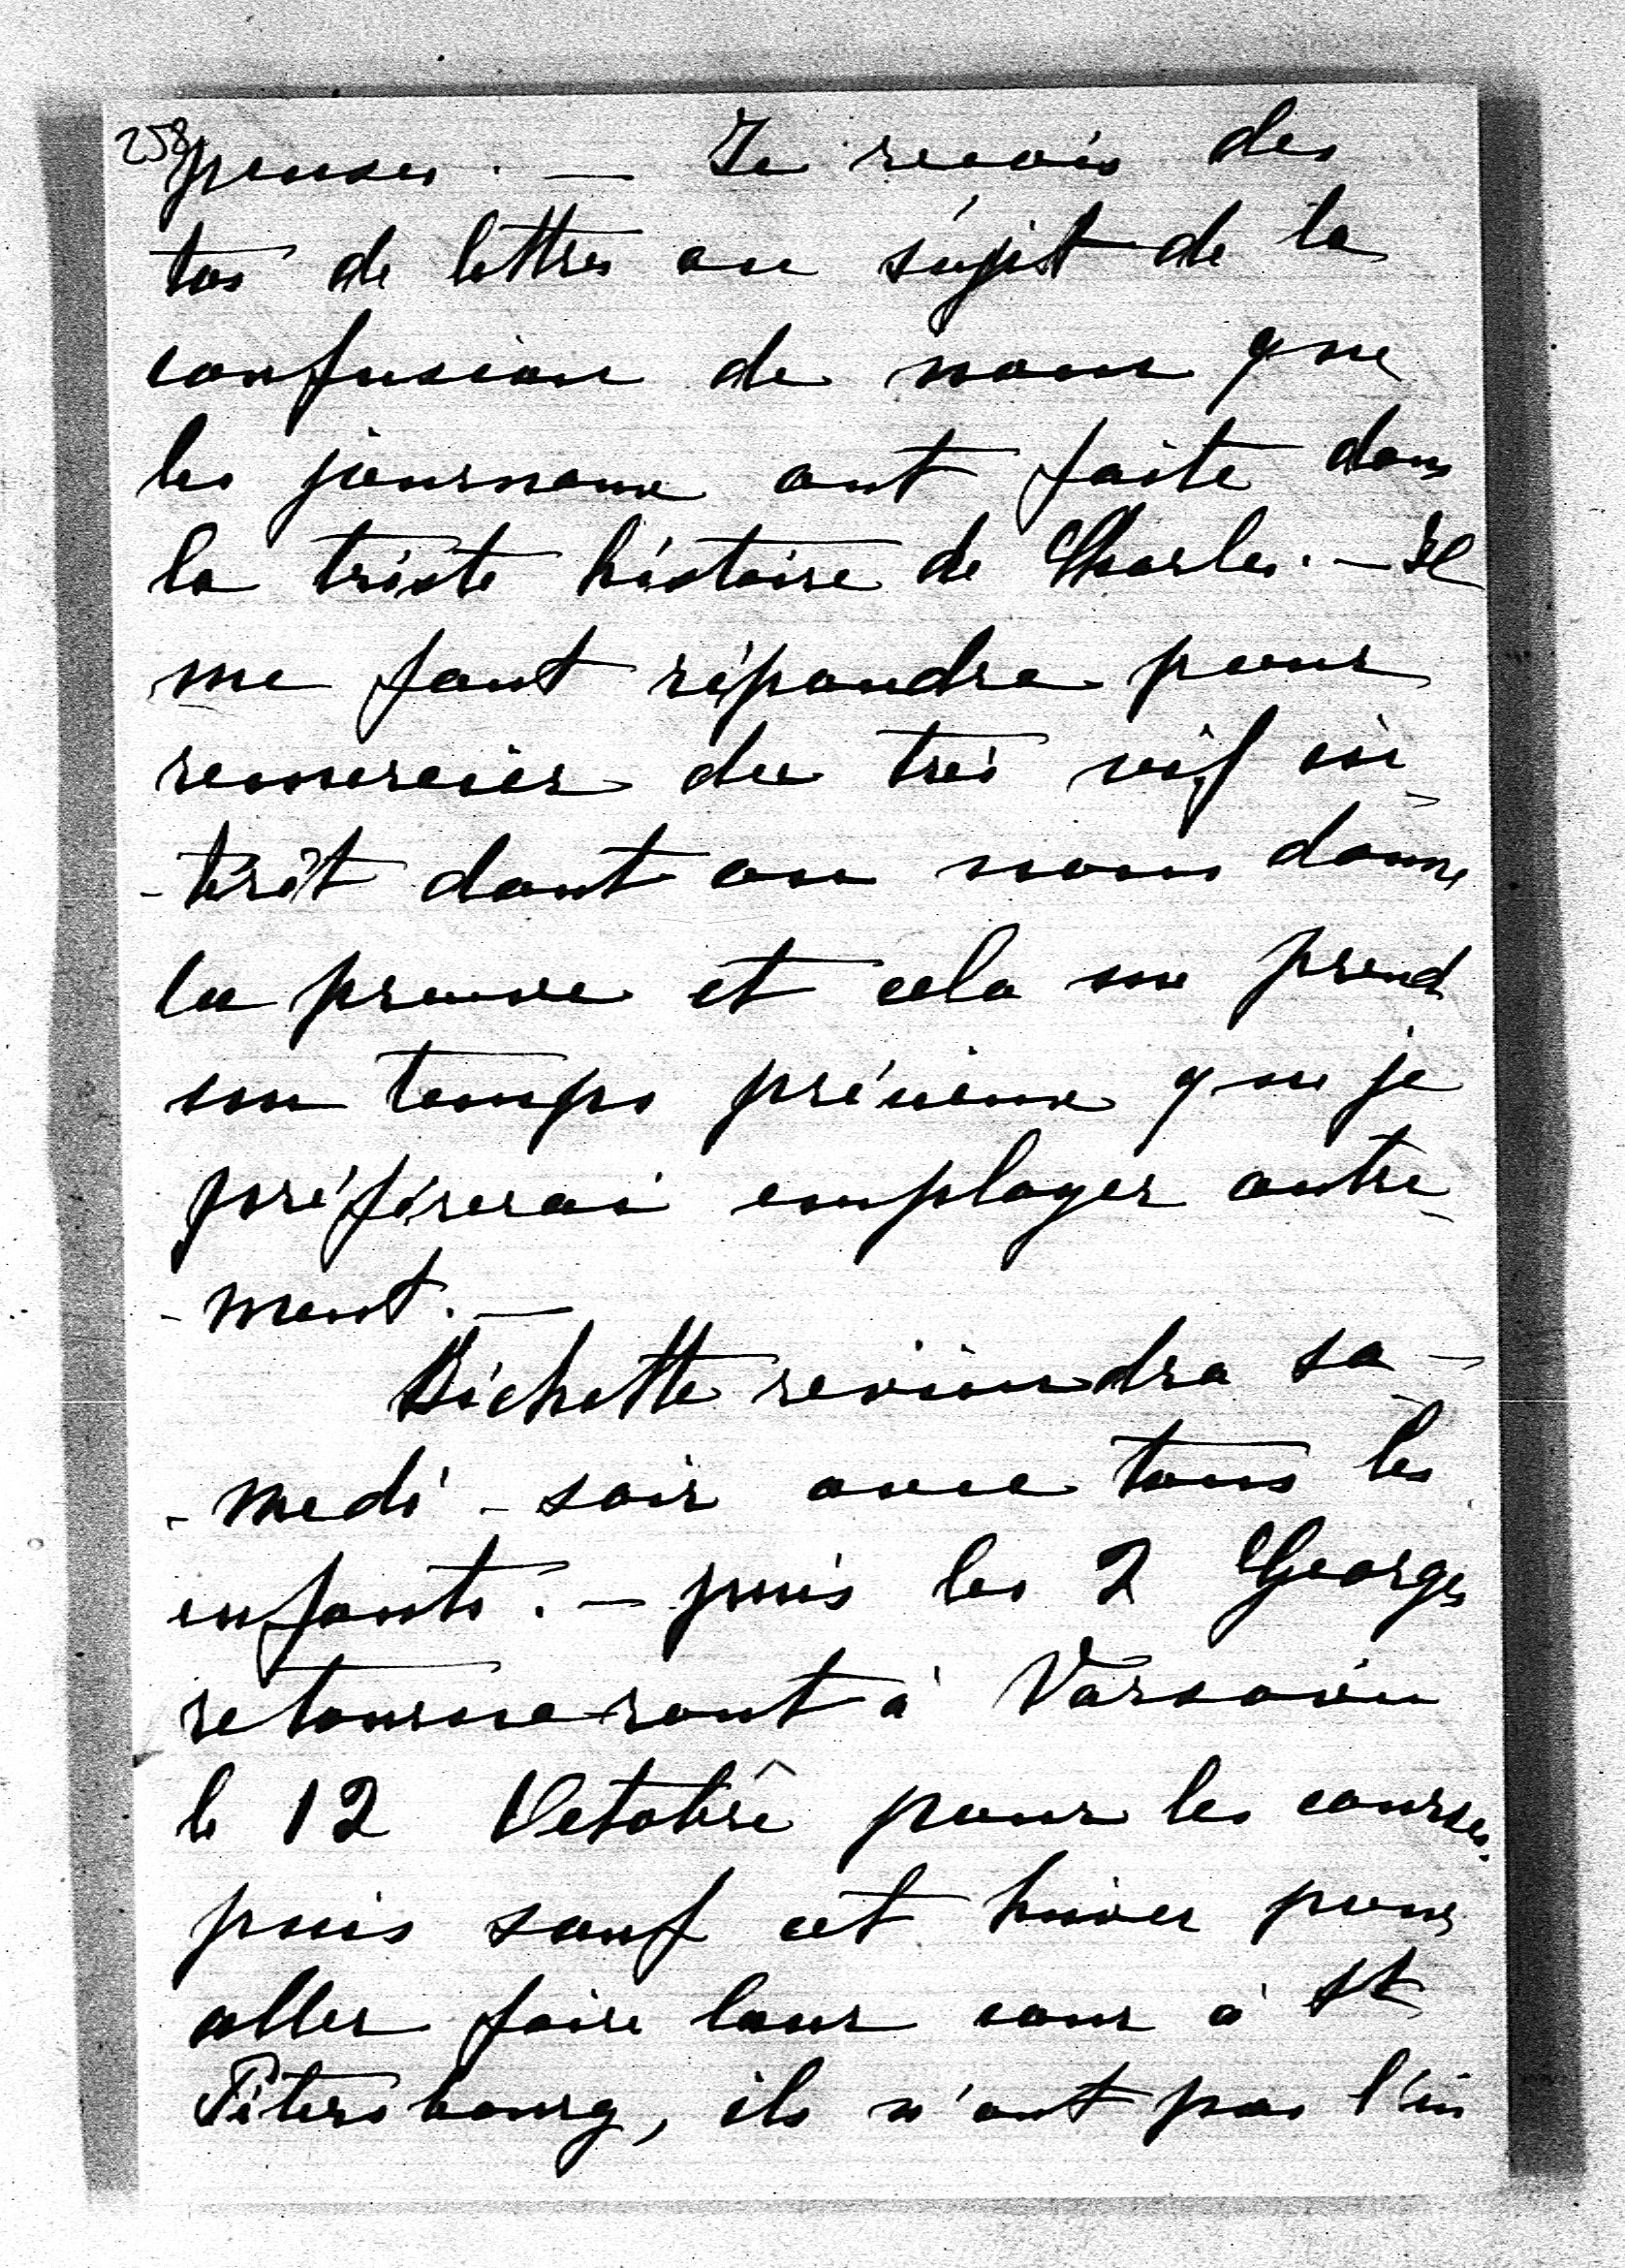 258
penses. — Je reçois des
tas de lettres au sujet de la
confusion de noms que
les journaux ont faite dans
la triste histoire de Charles. — Il
me faut répondre pour
remercier du très vif in-
-térêt dont on nous donne
la preuve et cela me prend
un temps précieux que je
préférerai employer autre-
-ment. —
Bichette reviendra sa-
-medi-soir avec tous les
enfants. — puis les 2 Georges
retourneront à Varsovie
le 12 Octobre pour les courses.
puis sauf cet hiver pour
aller faire leur cour à St
Pétersbourg, ils n'ont pas l'in